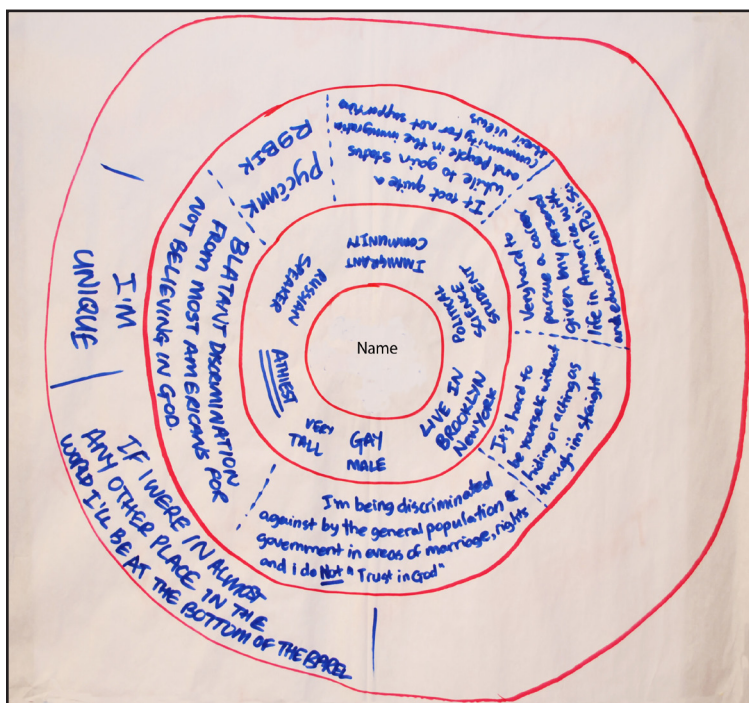 Name
IMMIGRANT
COMMUNITY
POLITICAL
SCIENCE
STUDENT
LIVE IN
BROOKLYN
NEW YORK
GAY
MALE
VERY
TALL
ATHIEST
RUSSIAN
SPEAKER
It took quite a
while to gain status
and people in the immigratio
community for not supporting
their views
Very hard to
pursue a career
given my personal
life in America with
and education in Poli. Sci
It is hard to
be yourself without
hiding or acting as
though i'm straight
I'm being discriminated
against by the general population &
government in areas of marriage, rights
and i do Not "Trust in God"
BLATANT DISCRIMINATION
FROM MOST AMERICANS FOR
NOT BELIEVING IN GOD.
РУССИИК
ЯЗВІК
I'M
UNIQUE
IF I WERE IN ALMOST
ANY OTHER PLACE IN THE
WORLD I'LL BE AT THE BOTTOM OF THE BAREL